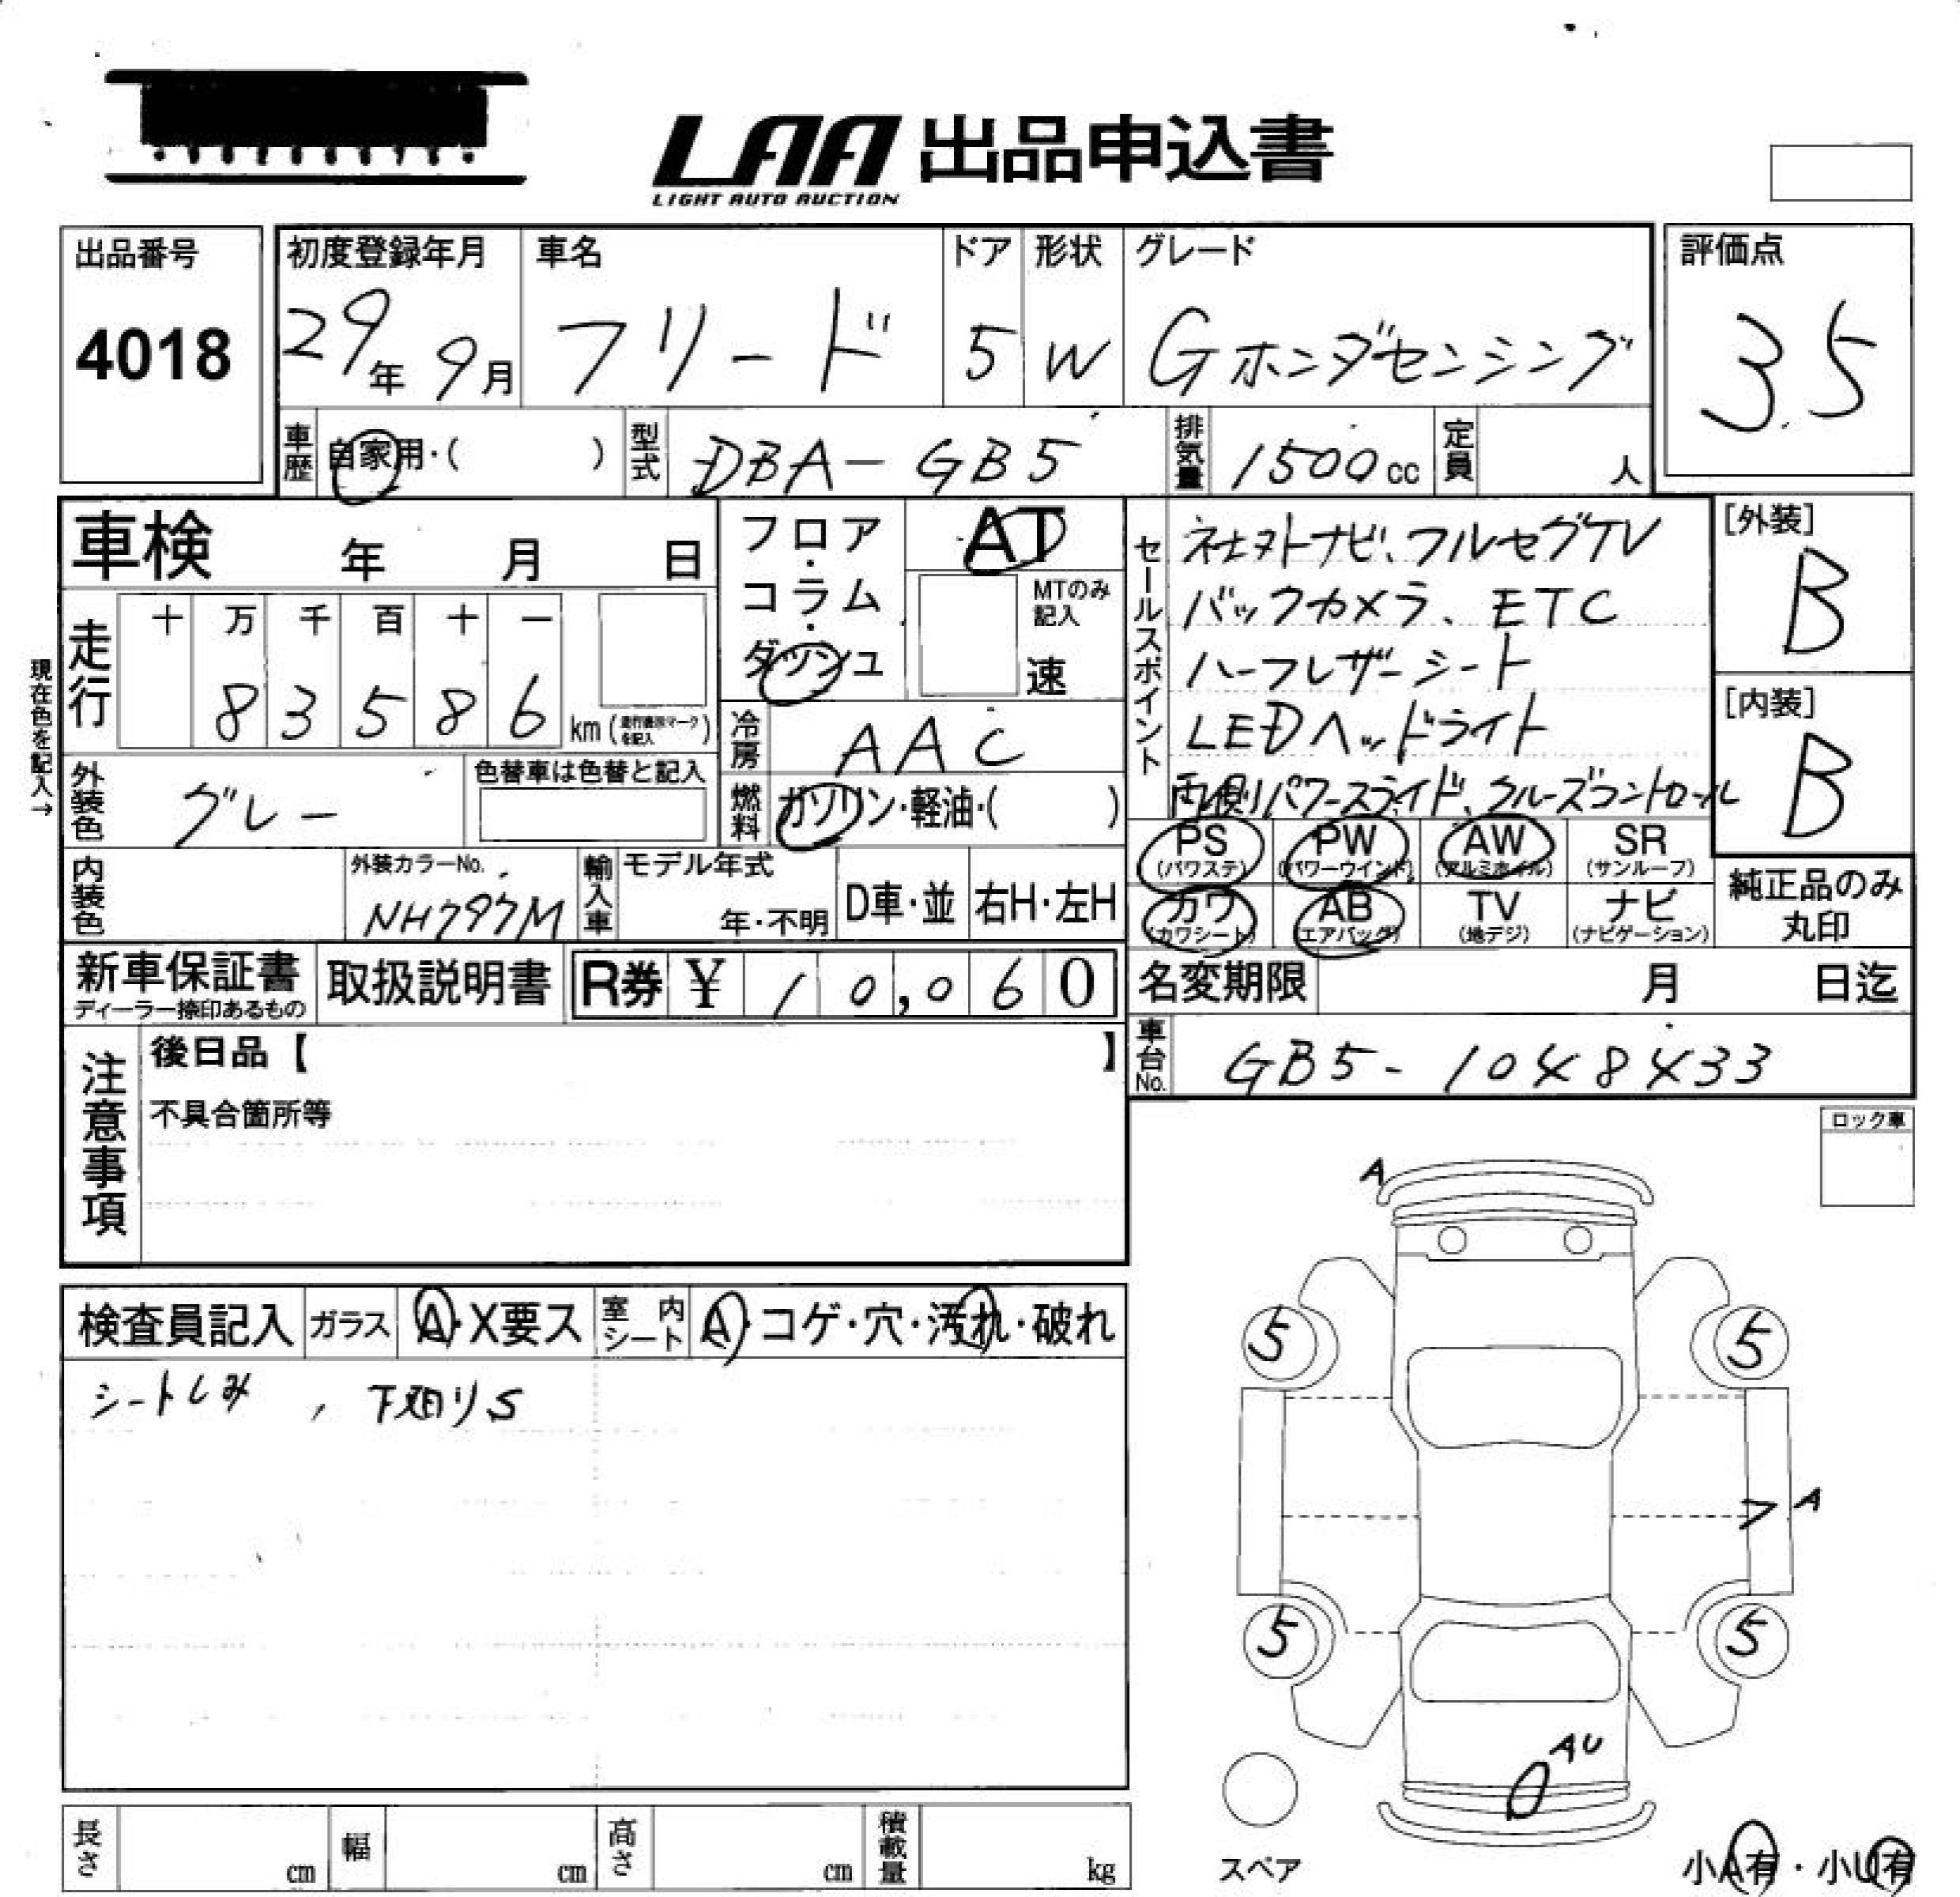 LAA 出品申込書
LIGHT AUTO AUCTION
出品番号
4018
初度登録年月
29年 9月
車名
フリード
ドア
5
形状
W
グレード
Gホンダセンシング
評価点
3.5
車歴
自家用・( )
型式
DBA-GB5
排気量
1500cc
定員
人
車検 年 月 日
現在色を記入→
走行
十 万 千 百 十 一
8 3 5 8 6 km
(走行表示マークを記入)
フロア・コラム・ダッシュ
AT
MTのみ記入
速
冷房
AAC
燃料
ガソリン・軽油・( )
外装色
グレー
色替車は色替と記入
内装色
外装カラーNo.
NH797M
輸入車
モデル年式
年・不明
D車・並
右H・左H
セールスポイント
社外ナビ、フルセグTV
バックカメラ、ETC
ハーフレザーシート
LEDヘッドライト
両側パワースライド、クルーズコントロール
[外装]
B
[内装]
B
PS (パワステ)
PW (パワーウインド)
AW (アルミホイル)
SR (サンルーフ)
カワ (カワシート)
AB (エアバッグ)
TV (地デジ)
ナビ (ナビゲーション)
純正品のみ丸印
新車保証書
ディーラー捺印あるもの
取扱説明書
R券 ¥ 10,060
名変期限 月 日迄
車台No.
GB5-1048433
注意事項
後日品【 】
不具合箇所等
ロック車
検査員記入
ガラス
A・X要ス
室内シート
A・コゲ・穴・汚れ・破れ
シートしみ , 下廻りS
A
5
5
A
5
5
AU
スペア
小A有・小U有
長さ cm
幅 cm
高さ cm
積載量 kg